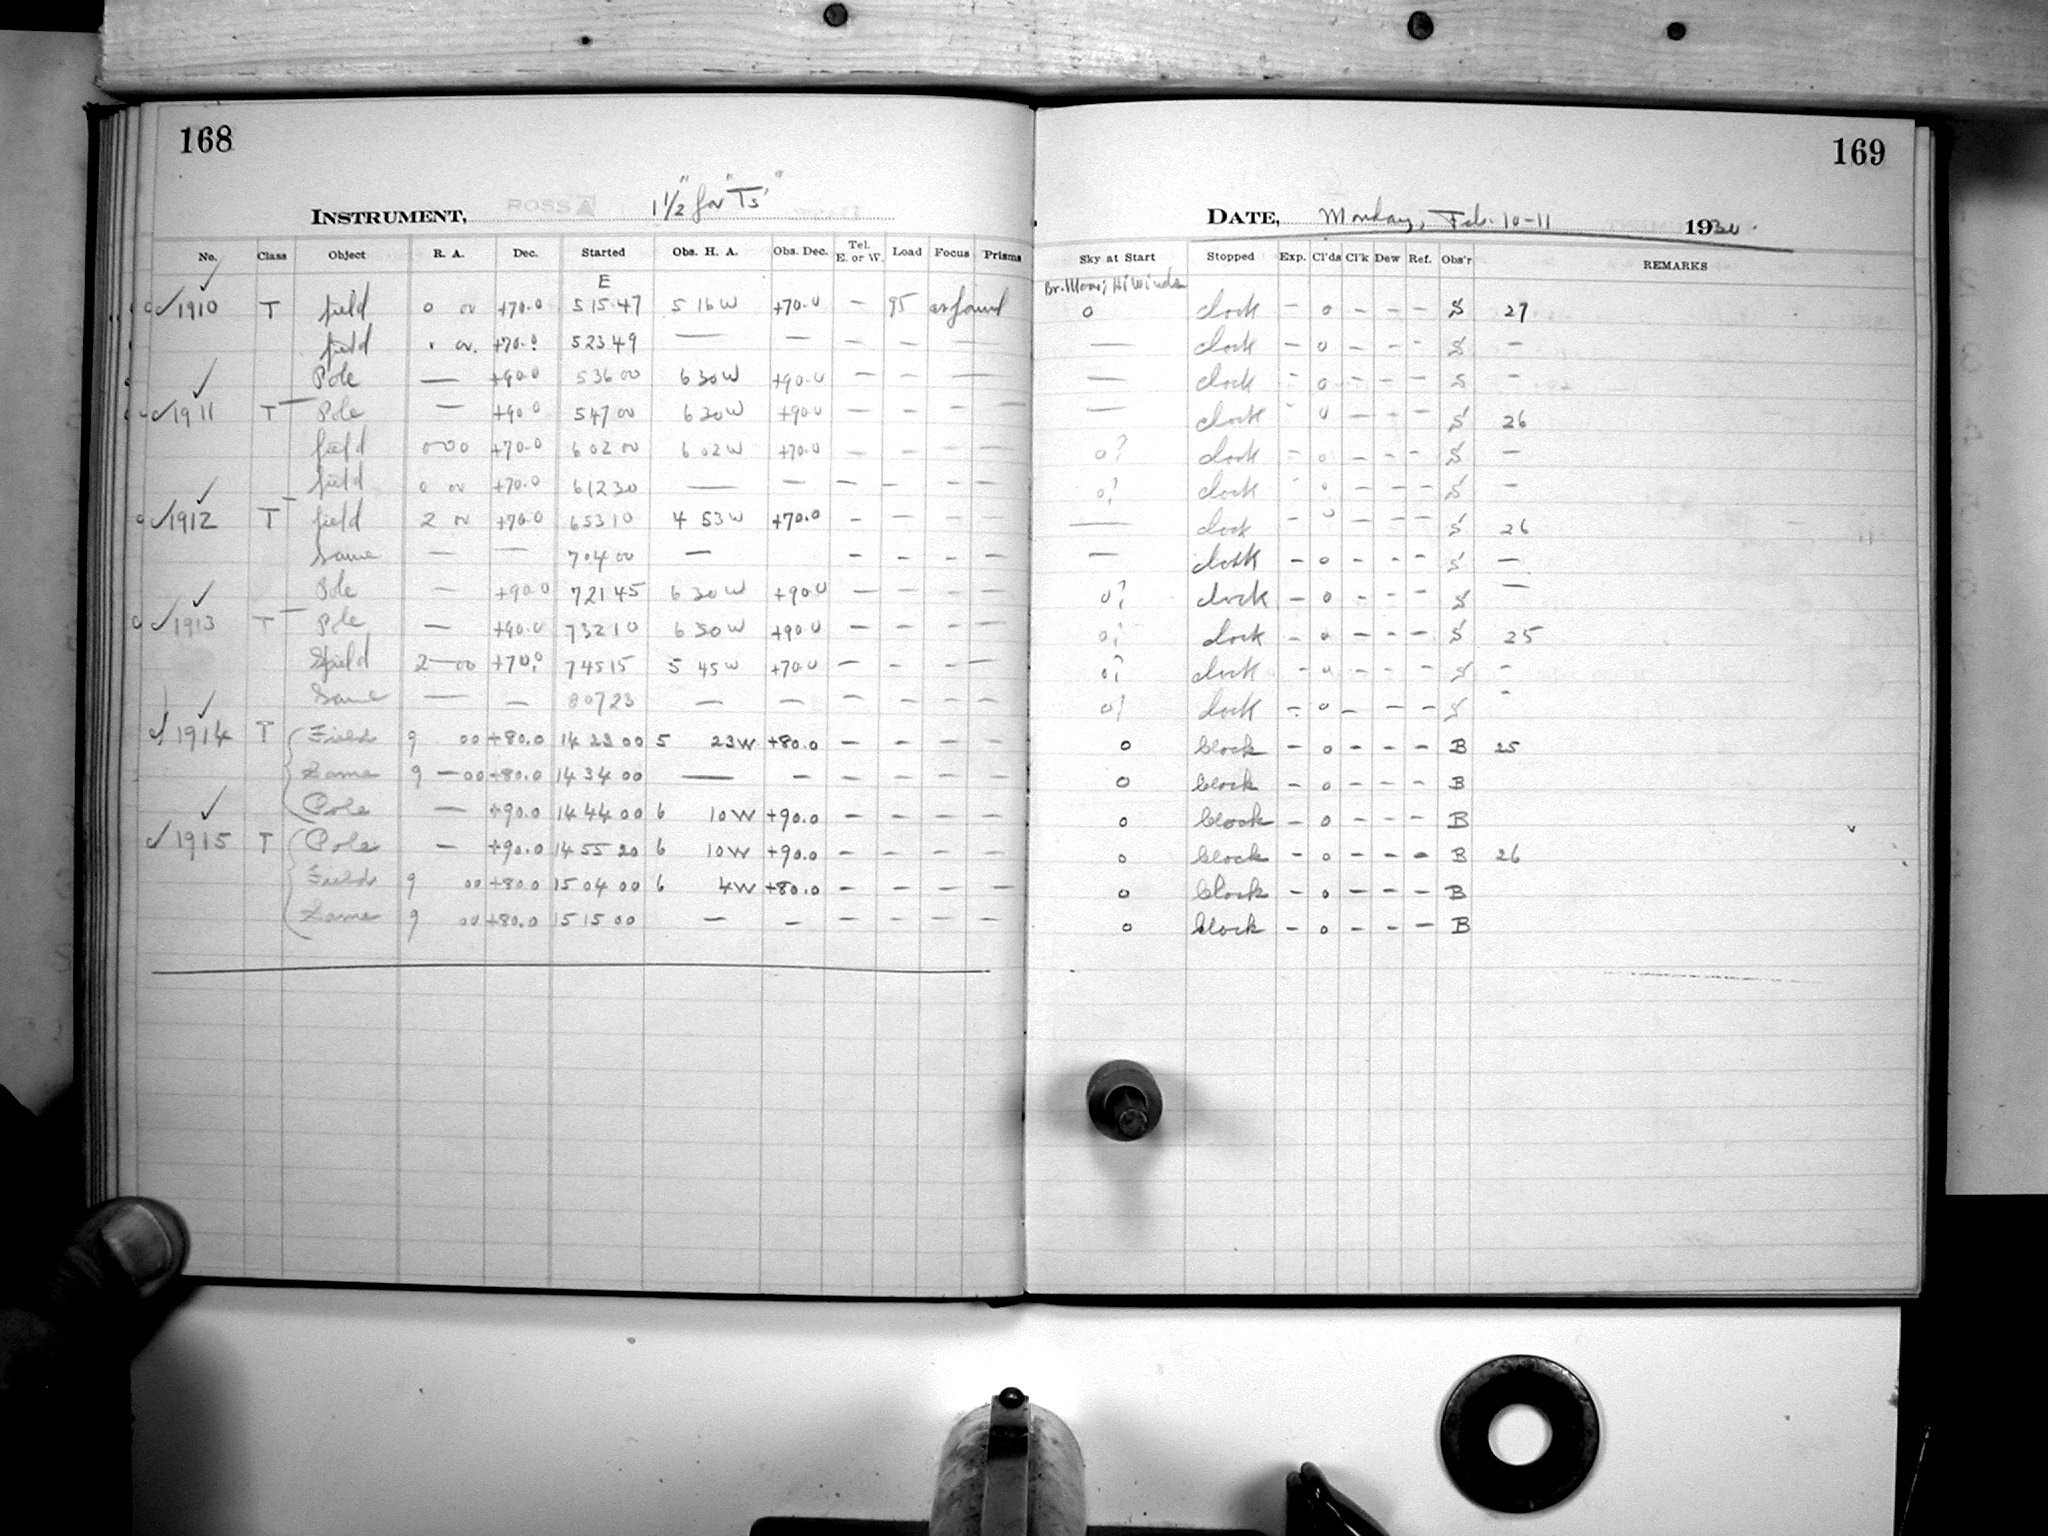 168
INSTRUMENT, ROSS A 1 1/2" for "Ts'"
No. Class Object R. A. Dec. Started Obs. H. A. Obs. Dec. Tel. E. or W. Load Focus Prisms
E
✓1910 T field 0 00 +70.0 5 15 47 5 16 W +70.0 — 95 as found
field 0 00 +70.0 5 23 49 — — — — — —
Pole — +90.0 5 36 00 6 30 W +90.0 — — —
✓1911 T Pole — +90.0 5 47 00 6 30 W +90.0 — — — —
field 0 00 +70.0 6 02 00 6 02 W +70.0 — — — —
field 0 00 +70.0 6 12 30 — — — — — —
✓1912 T field 2 00 +70.0 6 53 10 4 53 W +70.0 — — — —
Same — — 7 04 00 — — — — —
Pole — +90.0 7 21 45 6 30 W +90.0 — — — —
✓1913 T Pole — +90.0 7 32 10 6 30 W +90.0 — — — —
field 2—00 +70.0 7 45 15 5 45 W +70.0 — — — —
Same — — 8 07 23 — — — — — —
✓1914 T Field 9 00 +80.0 14 23 00 5 23 W +80.0 — — — —
Same 9 —00 +80.0 14 34 00 — — — — — —
Pole — +90.0 14 44 00 6 10 W +90.0 — — — —
✓1915 T Pole — +90.0 14 55 20 6 10 W +90.0 — — — —
Field 9 00 +80.0 15 04 00 6 4 W +80.0 — — — —
Same 9 00 +80.0 15 15 00 — — — — — —
169
DATE, Monday, Feb. 10-11 1930.
Sky at Start Stopped Exp. Cl'ds Cl'k Dew Ref. Obs'r REMARKS
Br. Moon; Hi Winds
0 clock — 0 — — — S 27
— clock — 0 — — — S —
— clock — 0 — — — S —
— clock — 0 — — — S 26
0? clock — 0 — — — S —
0? clock — 0 — — — S —
— clock — 0 — — — S 26
— clock — 0 — — — S —
0? clock — 0 — — — S —
0? clock — 0 — — — S 25
0? clock — 0 — — — S —
0? clock — 0 — — — S —
0 Clock — 0 — — — B 25
0 Clock — 0 — — — B
0 Clock — 0 — — — B
0 Clock — 0 — — — B 26
0 Clock — 0 — — — B
0 Clock — 0 — — — B